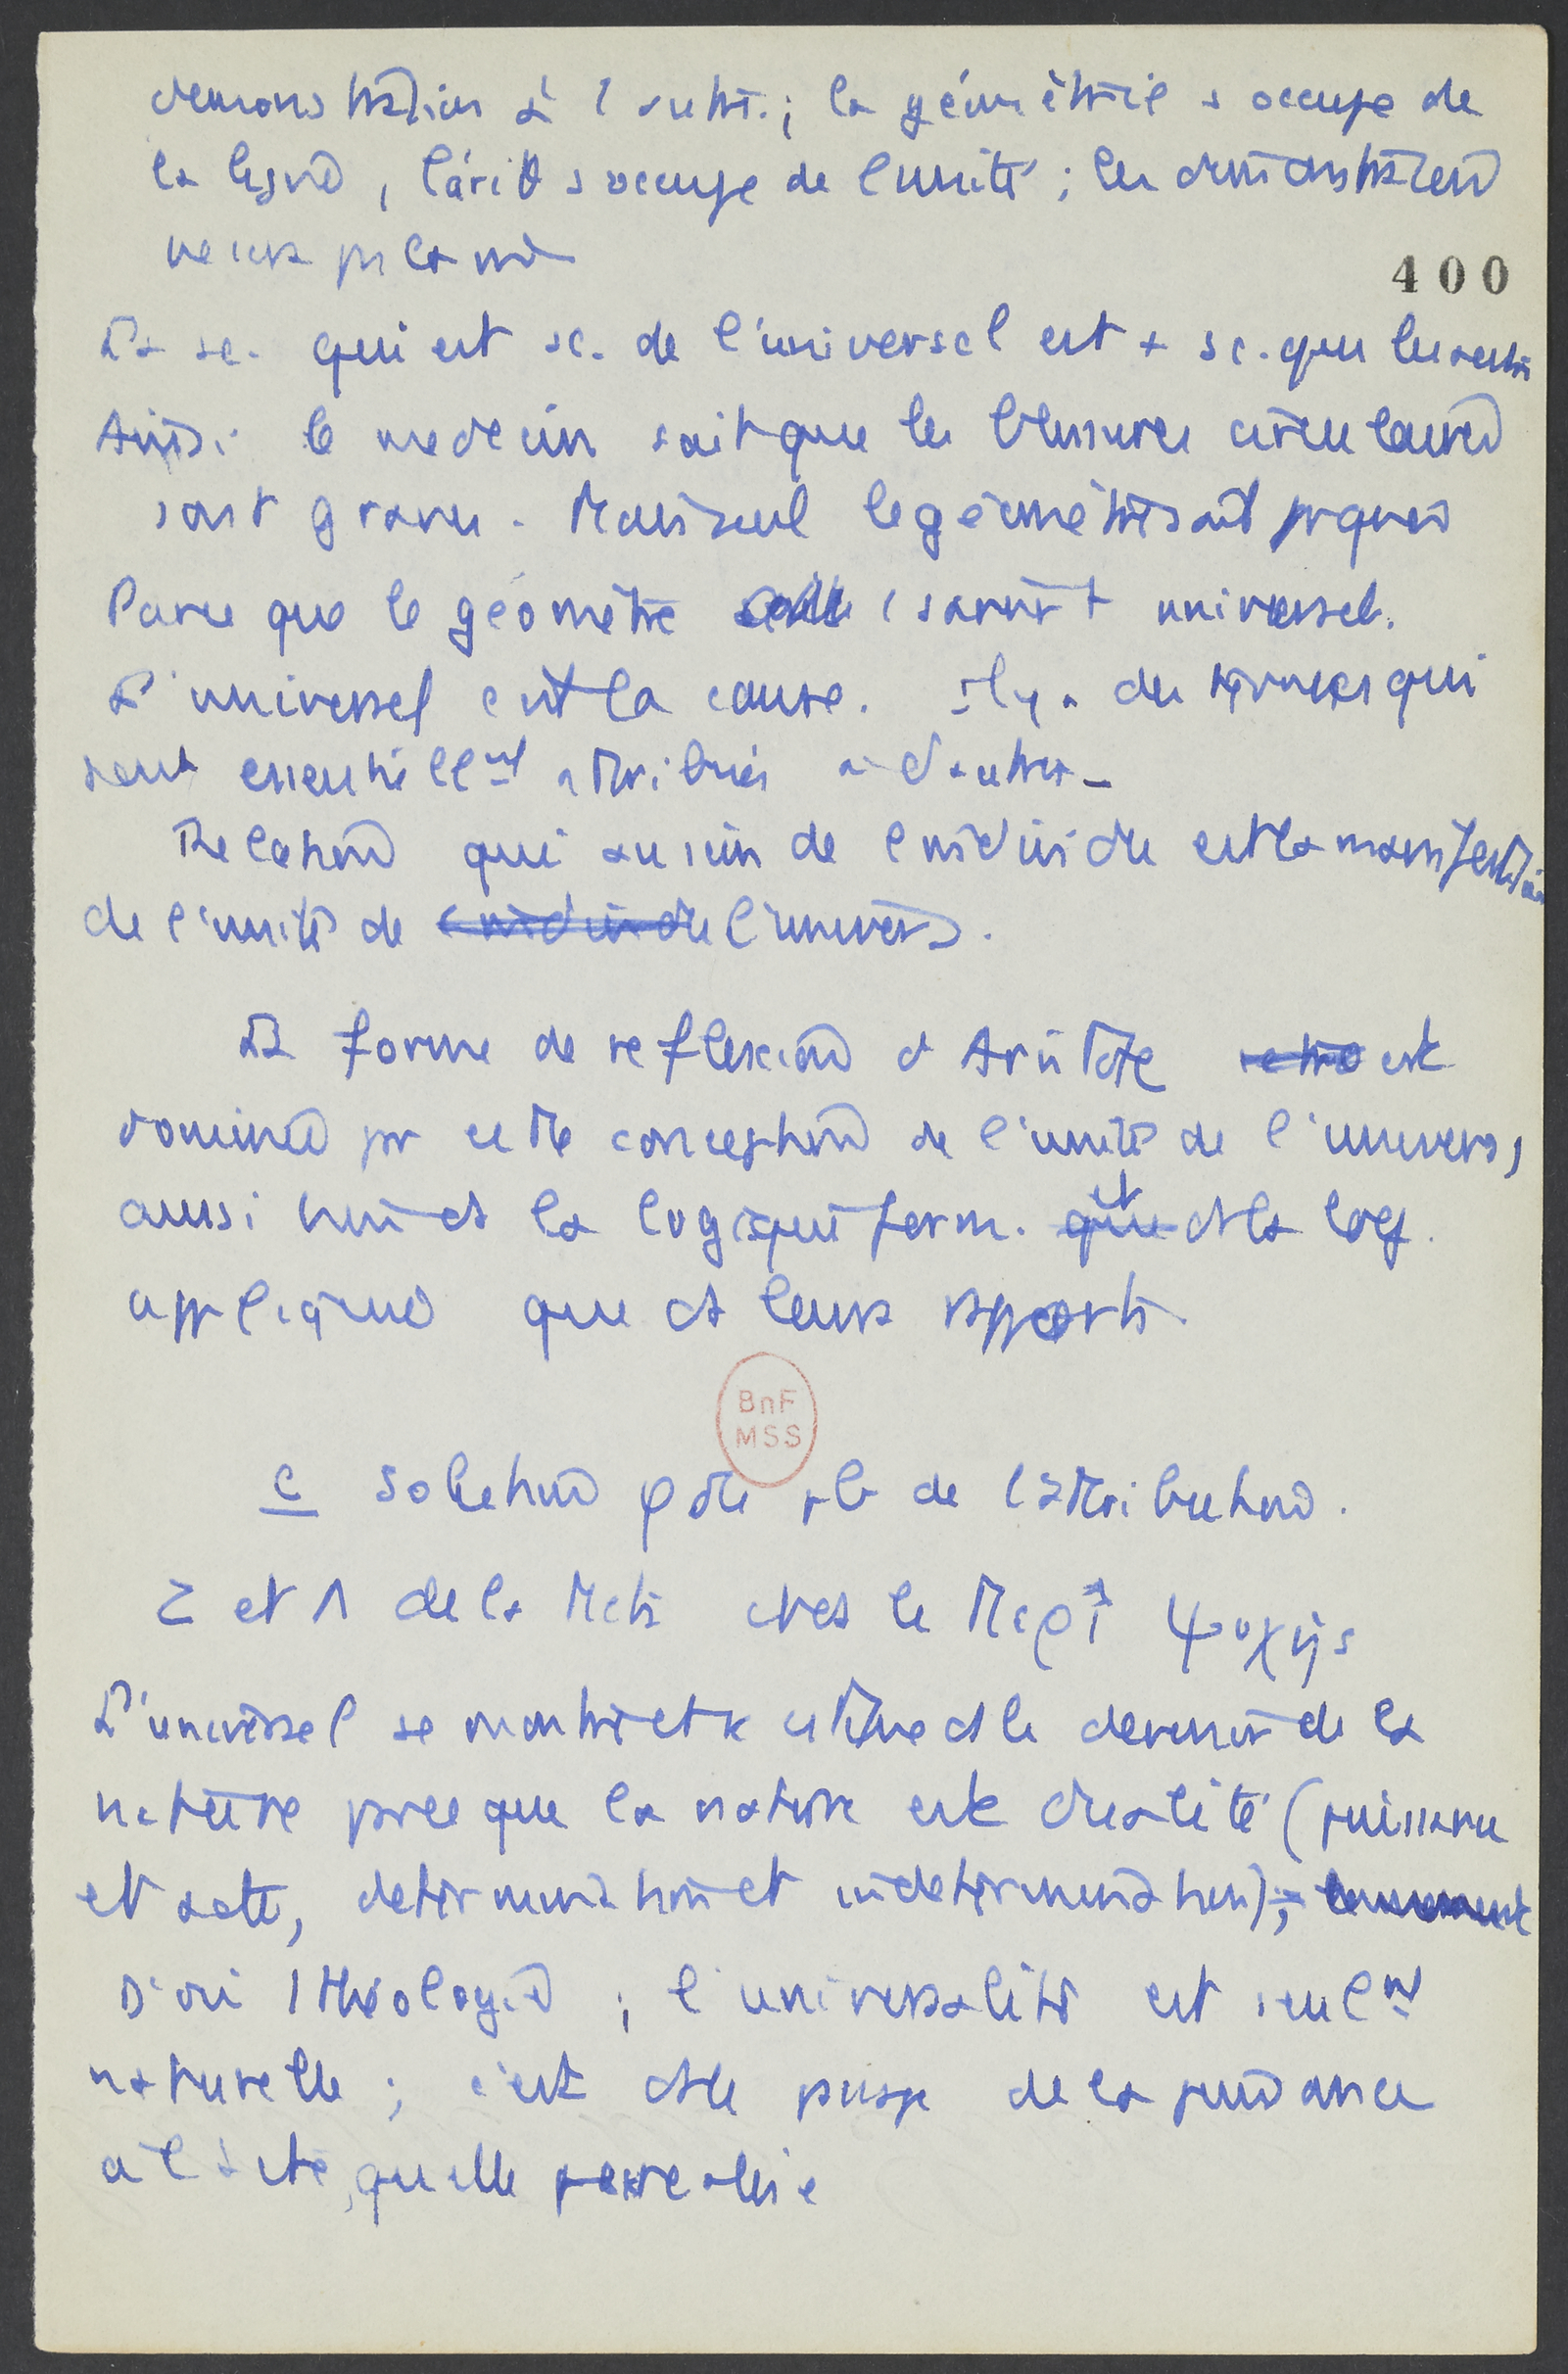 demonstration à l'autre ; la géométrie s'occupe de
la ligne, l'arith s'occupe de l'unité ; les démonstrations
400
La sc. qui est sc. de l'universel est + sc. que les autres
Ainsi le medecin sait que les blessures circulaires
sont graves. Mais seul le géomètre sait prquoi
Parce que le géomètre a 1 savoir + universel.
L'universel c'est la cause. Il y a des termes qui
sont essentiellmt attribués à d'autres_
Relation qui au sein de l'individu est la manifestation
de l'unité de l'individu l'univers.
La forme de reflexion d'Aristote est
dominée pr cette conception de l'unité de l'univers,
aussi bien ds la logique form. que et ds la log.
appliquée que ds leurs rapports
c Solution φ du pb de l'attribution.
Z et Λ de la Meta avec le Περὶ Ψυχῆς
L'universel se montre et ds le devenir de la
nature parce que la nature est dualité (puissance
et acte, determination et indetermination) ;
D'où 1 théologie ; l'universalité est seulmt
naturelle ; c'est ds le passage de la puissance
à l'acte, qu'elle